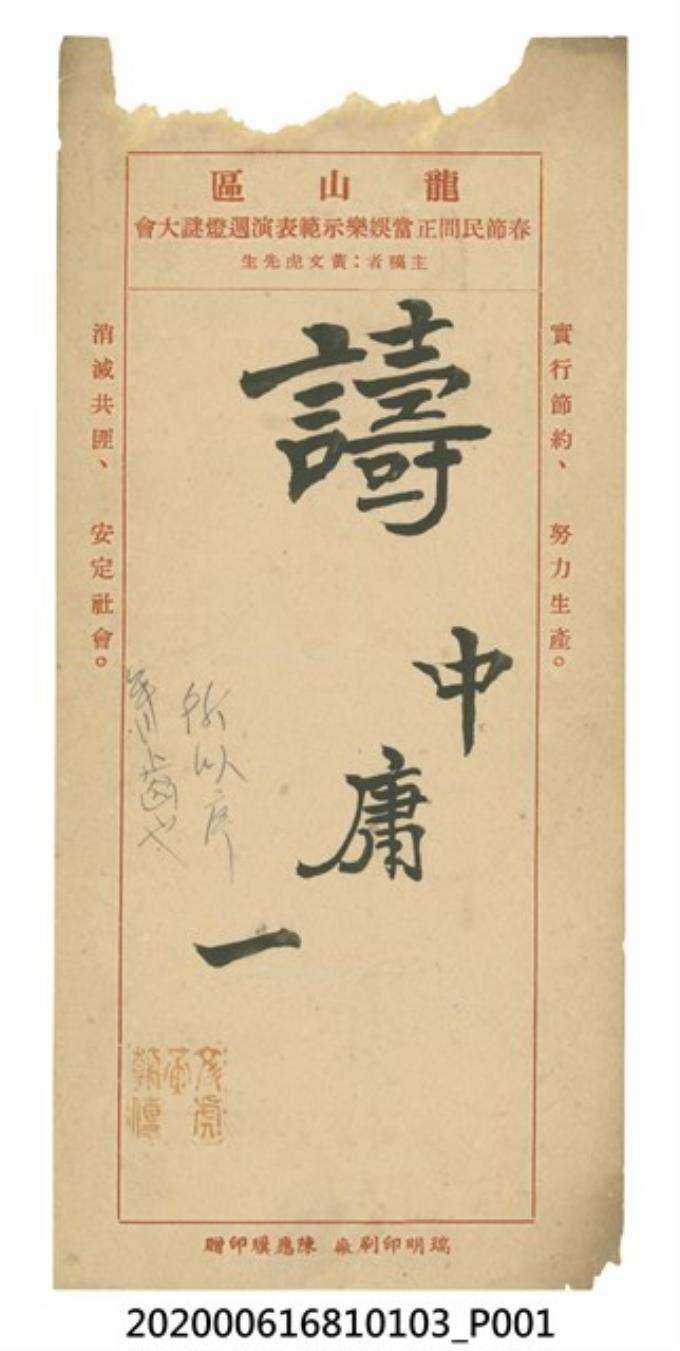 龍山區
春節民間正當娛樂示範表演週燈謎大會
主稿者：黃文虎先生
實行節約、 努力生產。
譸
中
庸
一
所以序
齒也
消滅共匪、 安定社會。
文虎
瑞明印刷廠 陳應印贈
202000616810103_P001